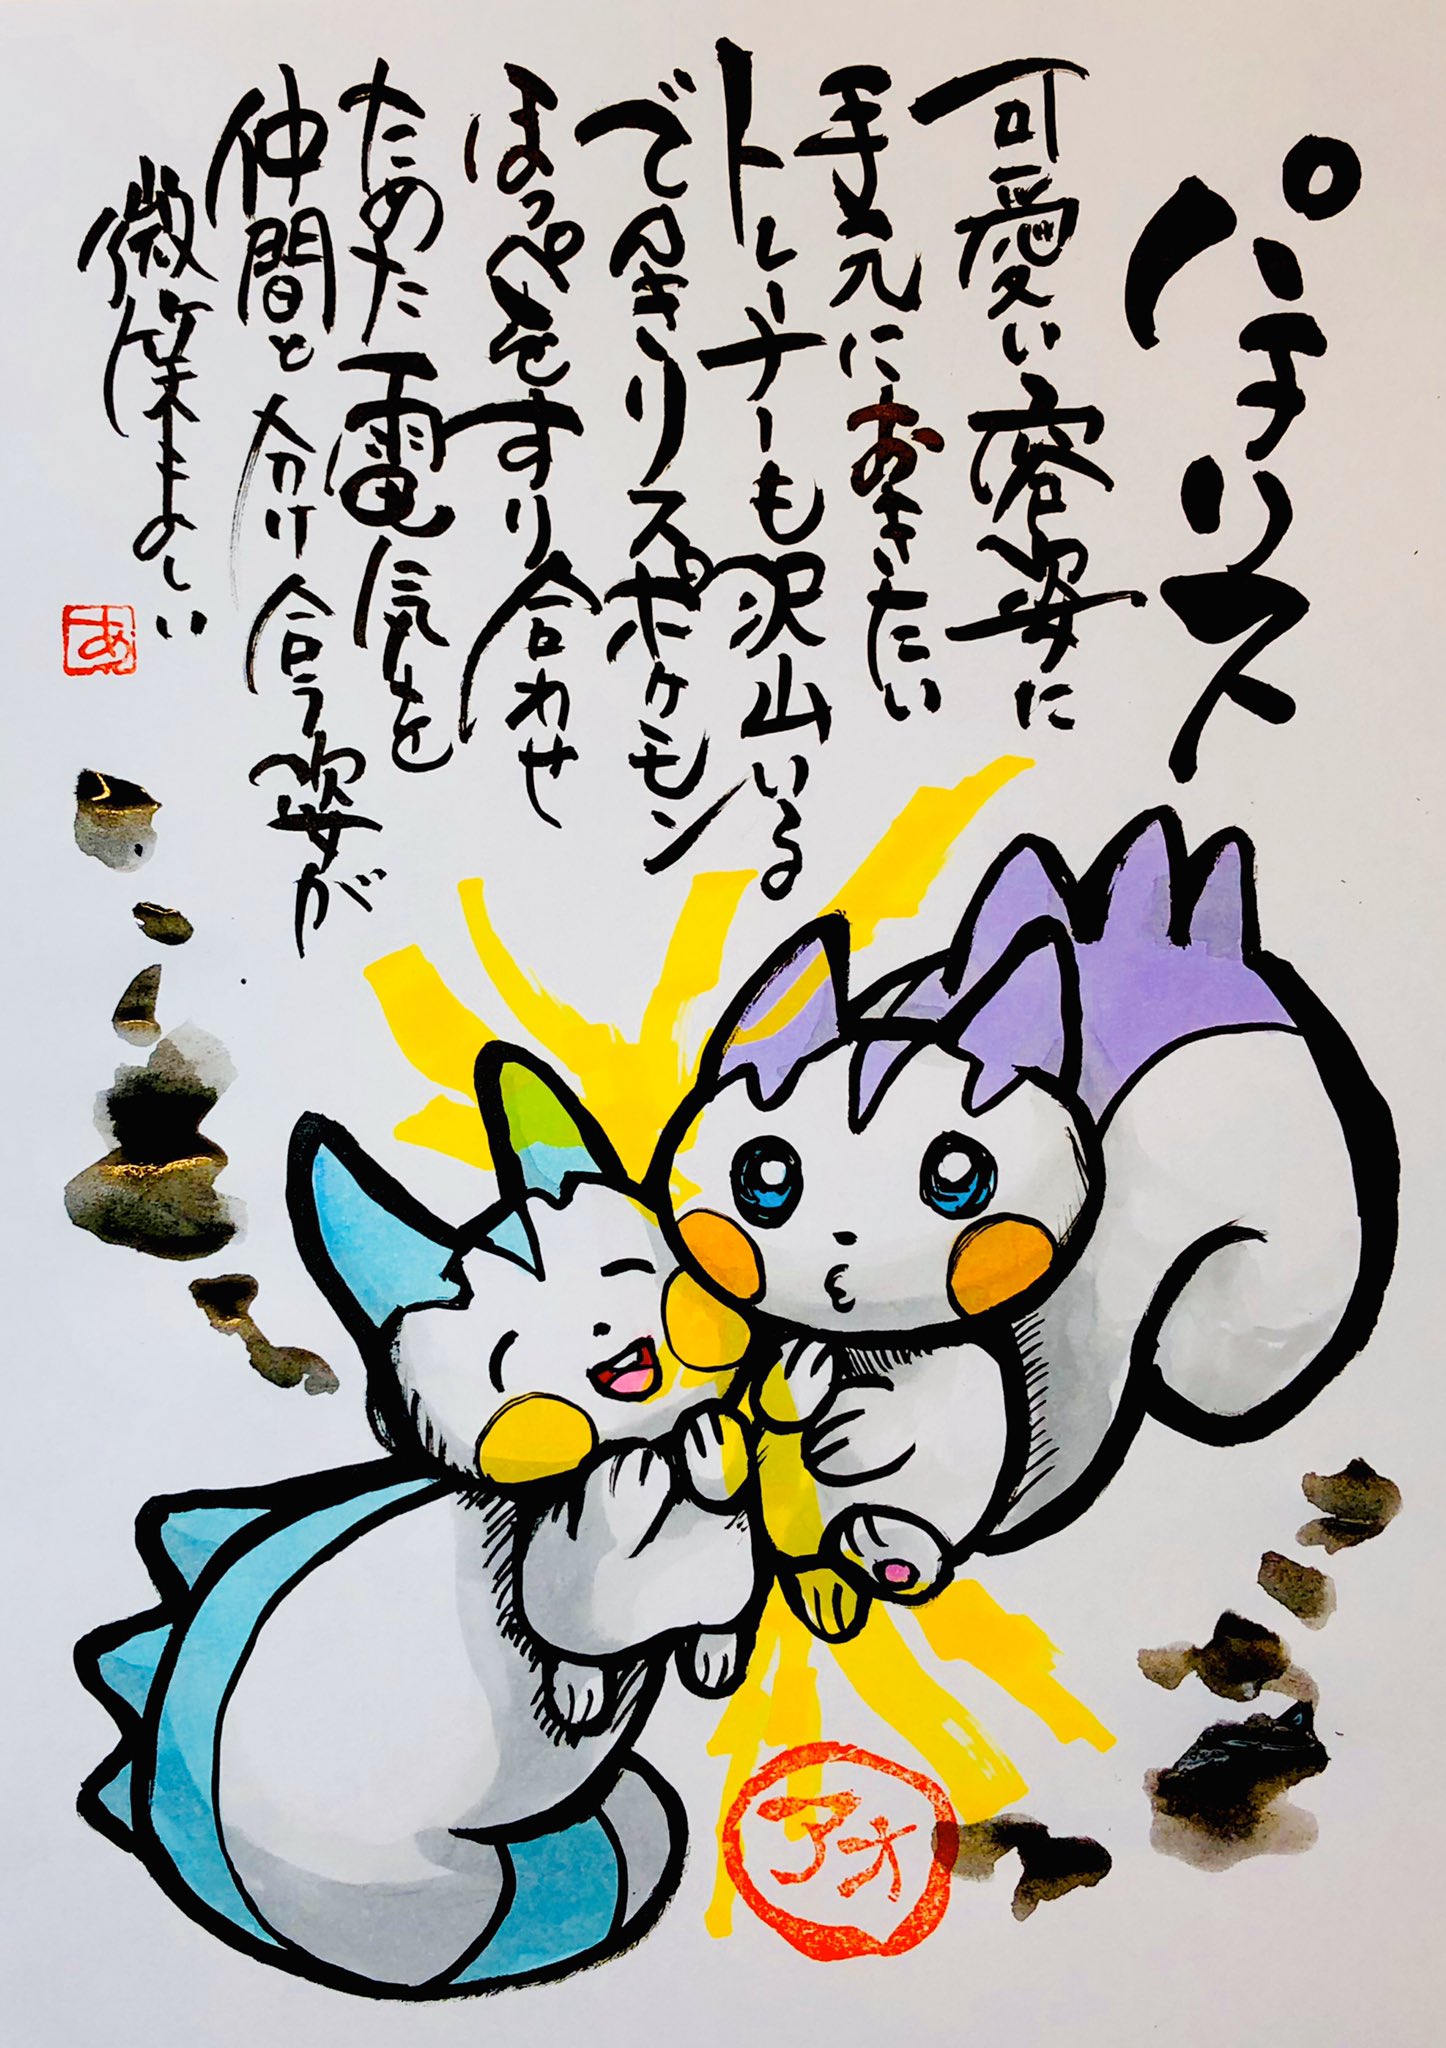 パチリス
可愛い容姿に
手元におきたい
トレーナーも沢山いる
でんきリスポケモン
ほっぺをすり合わせ
ためた電気を
仲間と分け合う姿が
微笑ましい
あ
アオ